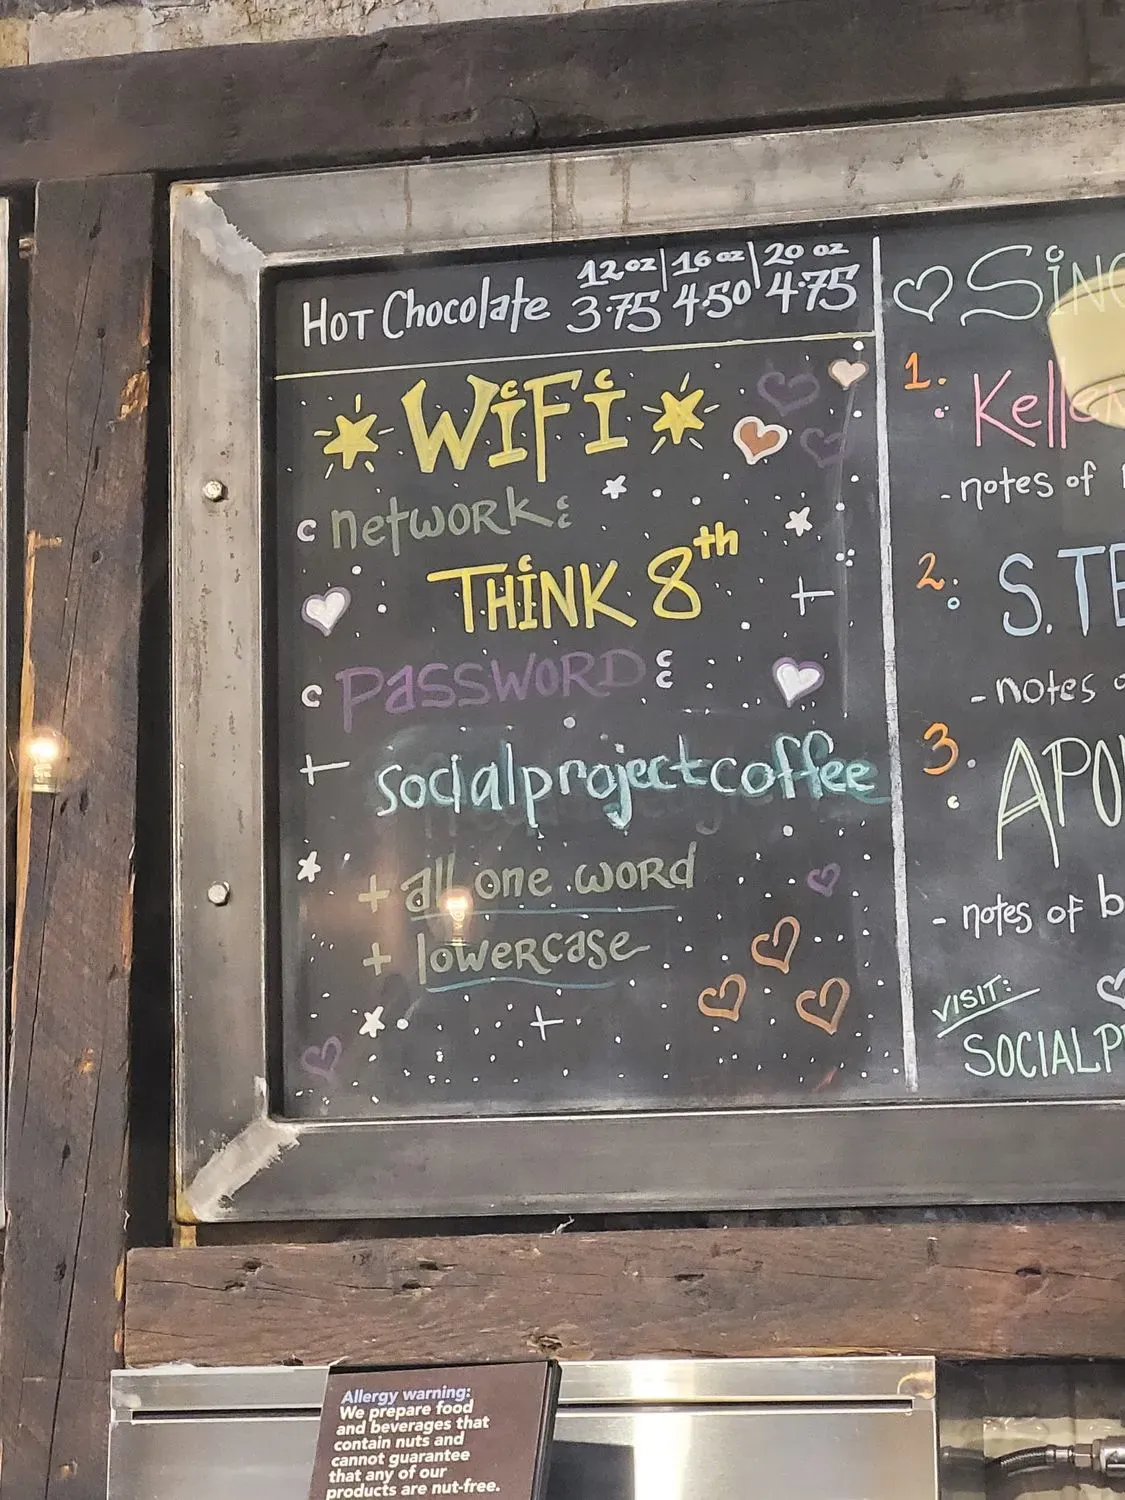 12 oz | 16 oz | 20 oz
Hot Chocolate 3.75 4.50 4.75
WiFi
network:
THiNK 8th
PASSWORD:
socialprojectcoffee
+ all one word
+ lowercase
1.
- notes of
2.
- notes
3.
- notes of
VISIT:
Allergy warning:
We prepare food
and beverages that
contain nuts and
cannot guarantee
that any of our
products are nut-free.